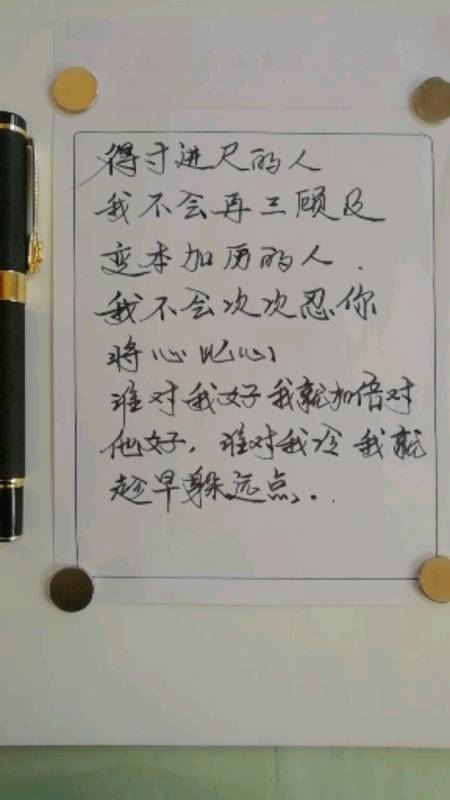 得寸进尺的人
我不会再三顾及
变本加厉的人.
我不会次次忍你
将心比心
谁对我好我就加倍对
他好,谁对我冷我就
趁早躲远点..